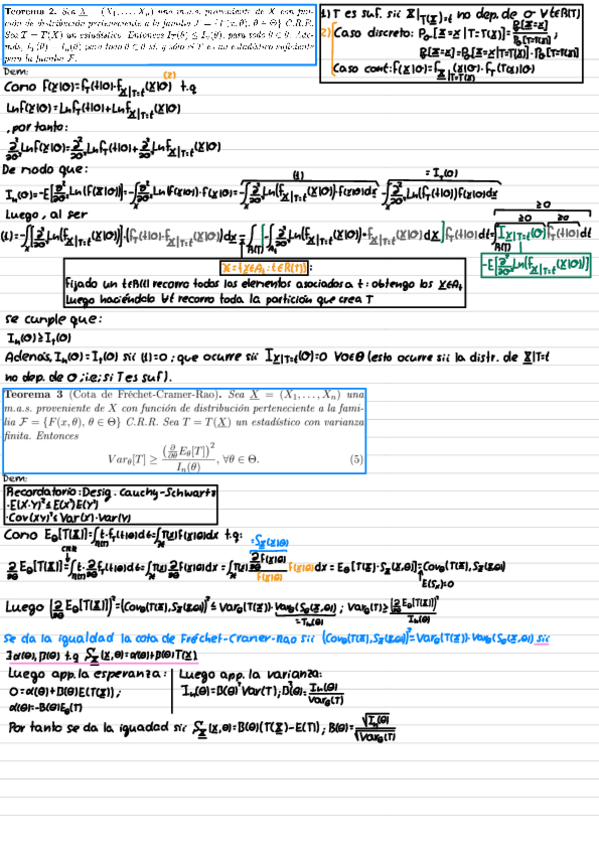 Teorema 2. Sea X = (X1, ..., Xn) una m.a.s. proveniente de X con función de distribución perteneciente a la familia F = {F(x, θ), θ ∈ Θ} C.R.R.
Sea T = T(X) un estadístico. Entonces I_T(θ) ≤ I_n(θ), para todo θ ∈ Θ. Además, I_T(θ) = I_n(θ) para todo θ ∈ Θ si y sólo si T es estadístico suficiente
para la familia F.
1) T es suf. sii X|T(X)=t no dep. de θ ∀t∈R(T)
2) Caso discreto: Pθ[X=x|T=T(x)] = Pθ[X=x]/Pθ[T=T(x)];
Pθ[X=x]=Pθ[X=x|T=T(x)]·Pθ[T=T(x)]
Caso cont: f(x|θ)=f_X|T=T(x)(x|θ)·f_T(T(x)|θ)
Dem:
(2)
Como f(x|θ)=f_T(t|θ)·f_X|T=t(x|θ) t.q
Ln f(x|θ)=Ln f_T(t|θ)+Ln f_X|T=t(x|θ)
, por tanto:
∂²/∂θ² Ln f(x|θ)=∂²/∂θ² Ln f_T(t|θ)+∂²/∂θ² Ln f_X|T=t(x|θ)
De modo que:
(1) = I_T(θ)
I_n(θ)=-E[∂²/∂θ² Ln(f(x|θ))]=-∫∂²/∂θ² Ln(f(x|θ))·f(x|θ)=-∫∂²/∂θ² Ln(f_X|T=t(x|θ))·f(x|θ)dx -∫∂²/∂θ² Ln(f_T(t|θ))f(x|θ)dx
Luego, al ser
≥0
≥0 ≥0
(1)=-∫[∂²/∂θ² Ln(f_X|T=t(x|θ))]·f_T(t|θ)·f_X|T=t(x|θ)dx=∫_R(T)[-∫_At ∂²/∂θ² Ln(f_X|T=t(x|θ))·f_X|T=t(x|θ)dx]f_T(t|θ)dt=∫_R(T) I_X|T=t(θ) f_T(t|θ)dt
-E[∂²/∂θ² Ln(f_X|T=t(x|θ))]
X={x∈At: t∈R(T)}:
Fijado un t∈R(T) recorro todos los elementos asociados a t: obtengo los x∈At
Luego haciéndolo ∀t recorro toda la partición que crea T
se cumple que:
I_n(θ)≥I_T(θ)
Además, I_n(θ)=I_T(θ) sii (1)=0; que ocurre sii I_X|T=t(θ)=0 ∀θ∈Θ (esto ocurre sii la distr. de X|T=t
no dep. de θ; i.e; si T es suf).
Teorema 3 (Cota de Fréchet-Cramer-Rao). Sea X = (X1, . . . , Xn) una
m.a.s. proveniente de X con función de distribución perteneciente a la fami-
lia F = {F(x, θ), θ ∈ Θ} C.R.R. Sea T = T(X) un estadístico con varianza
finita. Entonces
Varθ[T] ≥ (∂/∂θ Eθ[T])² / In(θ), ∀θ ∈ Θ. (5)
Dem:
Recordatorio: Desig. Cauchy-Schwartz
·E(X·Y)²≤E(X²)E(Y²)
·Cov(XY)²≤Var(X)·Var(Y)
Como Eθ[T(X)]=∫_R(T) t·f_T(t|θ)dt=∫T(x)f(x|θ)dx t.q:
CRR =S_X(x|θ)
∂/∂θ Eθ[T(X)]=∫_R(T) t·∂/∂θ f_T(t|θ)dt=∫T(x) ∂/∂θ f(x|θ)dx=∫T(x) ∂/∂θ f(x|θ)/f(x|θ) f(x|θ)dx = Eθ[T(X)·S_X(X,θ)]=Covθ(T(X),S_X(X,θ))
E(Sx)=0
Luego [∂/∂θ Eθ[T(X)]]²=(Covθ(T(X),S_X(X,θ)))²≤Varθ(T(X))·Varθ(S_X(X,θ)); Varθ(T)≥[∂/∂θ Eθ[T(X)]]²/In(θ)
=In(θ)
Se da la igualdad la cota de Fréchet-Cramer-Rao sii (Covθ(T(X),S_X(X,θ)))²=Varθ(T(X))·Varθ(S_X(X,θ)) sii
∃α(θ),β(θ) t.q S_X(X,θ)=α(θ)+β(θ)T(X)
Luego app. la esperanza:
0=α(θ)+β(θ)E(T(X));
α(θ)=-β(θ)Eθ(T)
Luego app. la varianza:
In(θ)=β(θ)²Var(T); β(θ)²=In(θ)/Varθ(T)
Por tanto se da la iguadad sii S_X(X,θ)=β(θ)(T(X)-E(T)); β(θ)=√In(θ)/√Varθ(T)